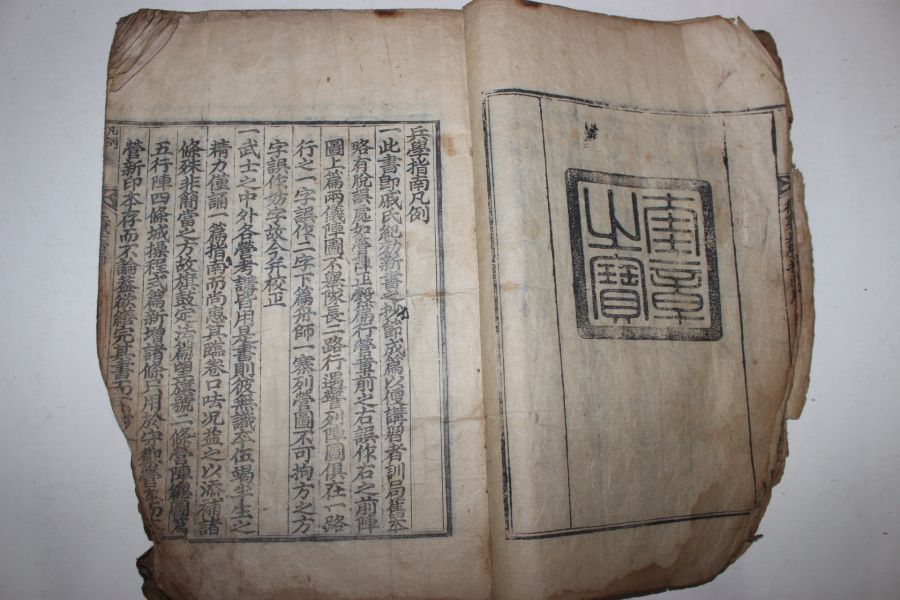 奎章
之寶
兵學指南凡例
一此書卽戚氏紀效新書之抄節成篇以便講習者訓局舊本
略有脫誤處如膺陣正彀篇行營疊前之右誤作右之前陣
圖上篇兩儀陣圖不擧隊長二路行遇警列陣圖俱在一路
行之一字誤作二字下篇班師一寨列營圖不可拘方之方
字誤作妨字故今并校正
一武士之中外各營考講皆用是書則彼無識卒伍竭生生之
精力僅誦一篇指南而尚患其臨卷口呿况益之以添補諸
條殊非簡當之方故旗鼓定法篇明旗號二條營陣總圖篇
五行陣四條城操程式篇新增諸條只用於守禦營
營新印本存而不論蓋欲完其書
凡例